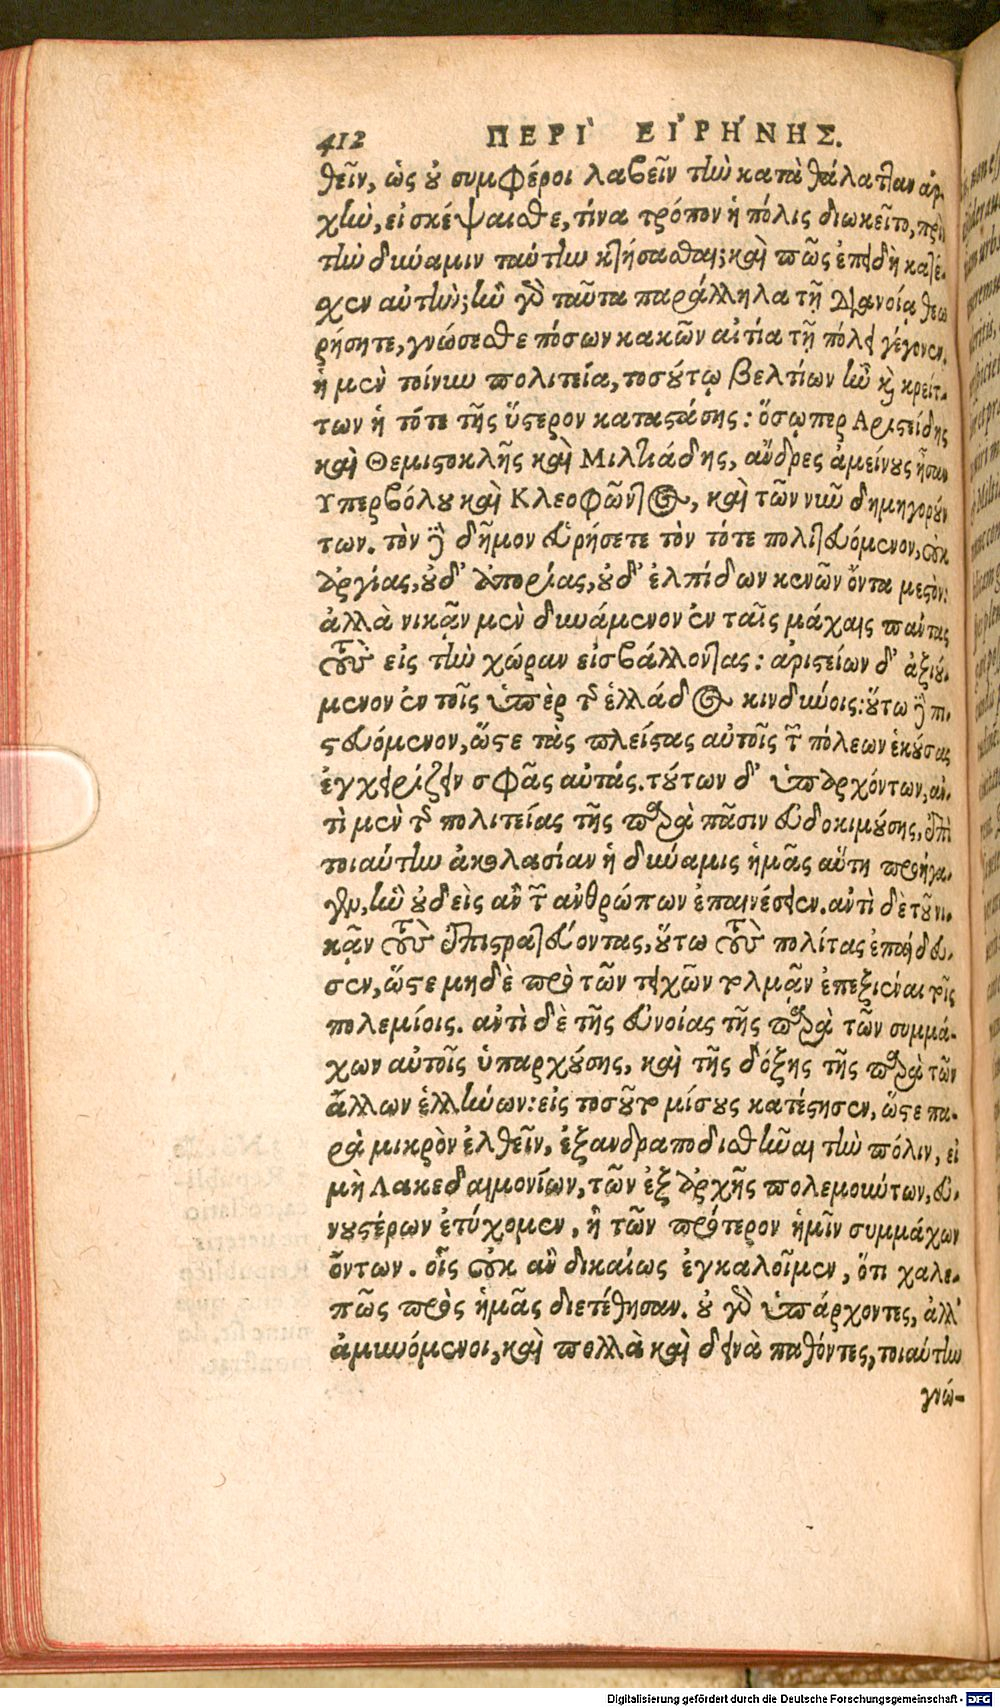 412 ΠΕΡΙ ΕΙΡΗΝΗΣ.
θεῖν, ὡς οὐ συμφέροι λαβεῖν τὴν κατὰ θάλατταν ἀρ-
χὴν, εἰ σκέψαισθε, τίνα τρόπον ἡ πόλις διωκεῖτο, πρὶν
τὴν δύναμιν ταύτην κτήσασθαι; καὶ πῶς ἐπειδὴ κατέ-
σχεν αὐτήν; ἢν γὰρ ταῦτα παράλληλα τῇ διανοίᾳ θεω
ρήσητε, γνώσεσθε πόσων κακῶν αἰτία τῇ πόλει γέγονεν.
ἡ μὲν τοίνυν πολιτεία, τοσούτῳ βελτίων ἦν καὶ κρείτ-
των ἡ τότε τῆς ὕστερον καταστάσης: ὅσῳπερ Αριστείδης
καὶ Θεμιστοκλῆς καὶ Μιλτιάδης, ἄνδρες ἀμείνους ἦσαν
Υπερβόλου καὶ Κλεοφῶντος, καὶ τῶν νῦν δημηγορούν
των. τὸν δὲ δῆμον εὑρήσετε τὸν τότε πολιτευόμενον, οὐκ
ἀργίας, οὐδ' ἀπορίας, οὐδ' ἐλπίδων κενῶν ὄντα μεστὸν:
ἀλλὰ νικᾷν μὲν δυνάμενον ἐν ταῖς μάχαις πάντας
τοὺς εἰς τὴν χώραν εἰσβάλλοντας: ἀριστείων δ' ἀξιού-
μενον ἐν τοῖς ὑπὲρ τῆς ἑλλάδος κινδύνοις: οὕτω δὲ πι-
στευόμενον, ὥστε τὰς πλείστας αὐτοῖς τῶν πόλεων ἑκούσας
ἐγχειρίζειν σφᾶς αὐτάς. τούτων δ' ὑπαρχόντων, ἀν-
τὶ μὲν τῆς πολιτείας τῆς παρὰ πᾶσιν εὐδοκιμούσης, ἐπὶ
τοιαύτην ἀκολασίαν ἡ δύναμις ἡμᾶς αὕτη προήγα-
γεν, ἣν οὐδεὶς ἂν τῶν ἀνθρώπων ἐπαινέσειεν. ἀντὶ δὲ τοῦ νι-
κᾷν τοὺς ἐπιστρατεύοντας, οὕτω τοὺς πολίτας ἐπαίδευ-
σεν, ὥστε μηδὲ πρὸ τῶν τειχῶν τολμᾷν ἐπεξιέναι τοῖς
πολεμίοις. ἀντὶ δὲ τῆς εὐνοίας τῆς παρὰ τῶν συμμά-
χων αὐτοῖς ὑπαρχούσης, καὶ τῆς δόξης τῆς παρὰ τῶν
ἄλλων ἑλλήνων: εἰς τοσοῦτο μίσους κατέστησεν, ὥστε πα-
ρὰ μικρὸν ἐλθεῖν, ἐξανδραποδισθῆναι τὴν πόλιν, εἰ
μὴ Λακεδαιμονίων, τῶν ἐξ ἀρχῆς πολεμούντων, εὐ-
νουστέρων ἐτύχομεν, ἢ τῶν πρότερον ἡμῖν συμμάχων
ὄντων. οἷς οὐκ ἂν δικαίως ἐγκαλοῖμεν, ὅτι χαλε-
πῶς πρὸς ἡμᾶς διετέθησαν. οὐ γὰρ ὑπάρχοντες, ἀλλ'
ἀμυνόμενοι, καὶ πολλὰ καὶ δεινὰ παθόντες, τοιαύτην
γνώ-
Digitalisierung gefördert durch die Deutsche Forschungsgemeinschaft - DFG